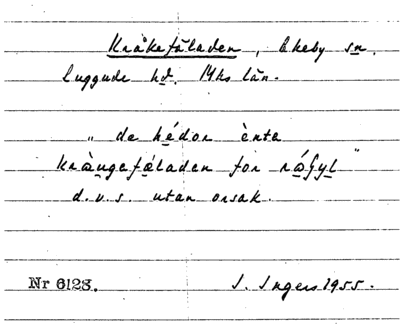 Kråkefåladen, Ekeby sn.
Luggude hd. Mhs län.
"de hédor ènte
kràngefáladen for ráʃyl"
d.v.s. utan orsak.
Nr 6128. I. Ingers 1955.